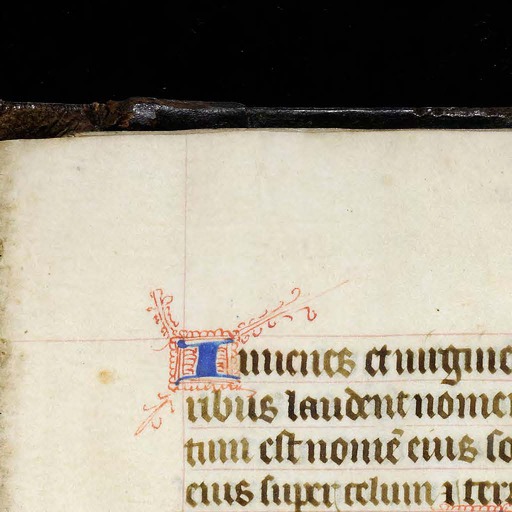 Iuuenes et uirgine
ribus laudent nomen
tum est nomē eius so
eius super celum ⁊ terr